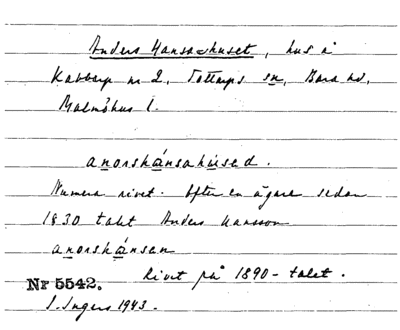 Anders Hansahuset, hus å
Kabbarp nr 2, Tottarps sn, Bara hd,
Malmöhus l.
anorshánsahúsed.
Numera rivet. Efter en ägare sedan
1830 talet Anders Hansson
anorshánsan
Rivet på 1890-talet.
Nr 5542.
I. Ingers 1943.